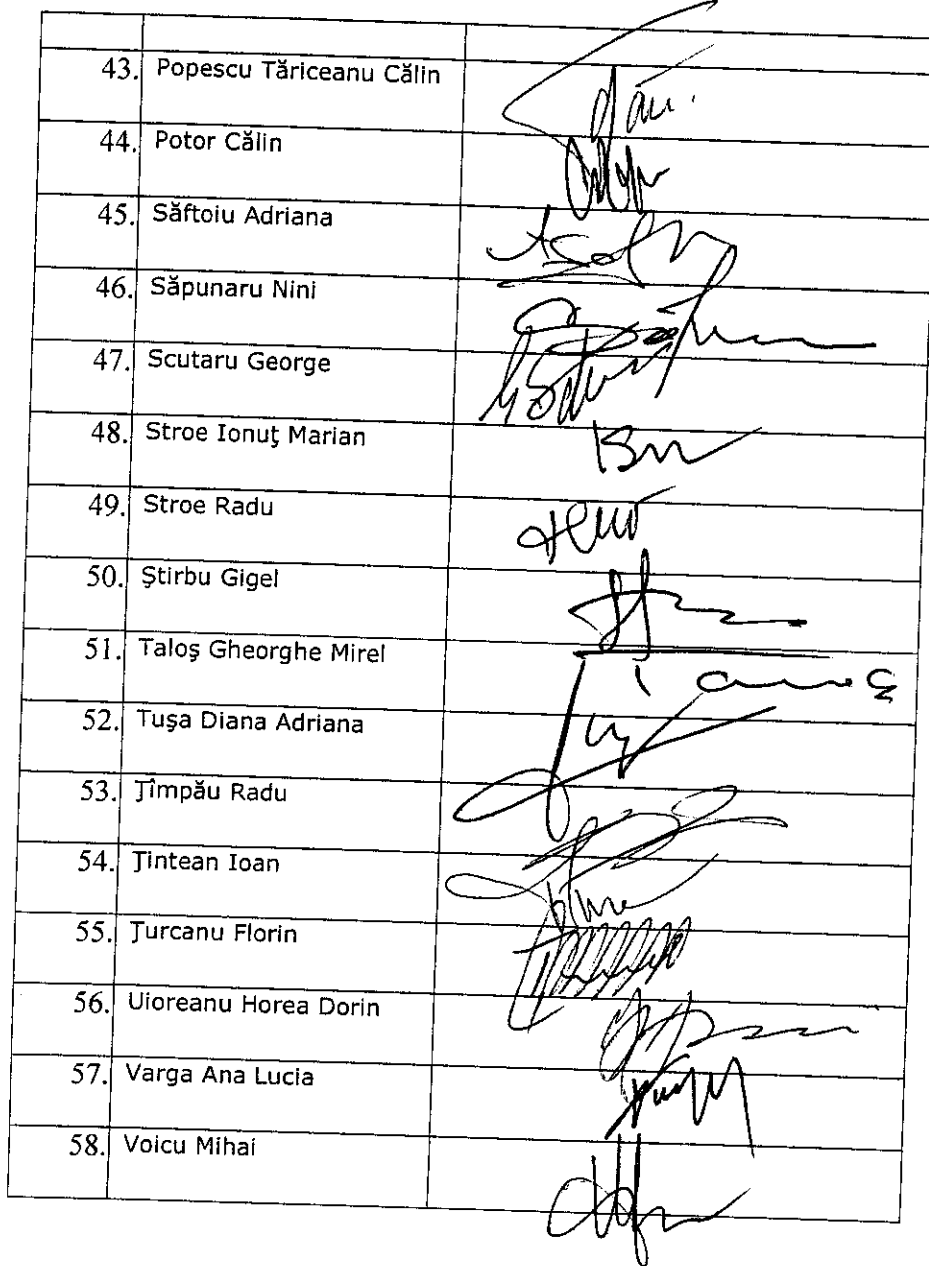 43. Popescu Tăriceanu Călin
44. Potor Călin
45. Săftoiu Adriana
46. Săpunaru Nini
47. Scutaru George
48. Stroe Ionuţ Marian
49. Stroe Radu
50. Ştirbu Gigel
51. Taloş Gheorghe Mirel
52. Tuşa Diana Adriana
53. Ţîmpău Radu
54. Ţintean Ioan
55. Ţurcanu Florin
56. Uioreanu Horea Dorin
57. Varga Ana Lucia
58. Voicu Mihai